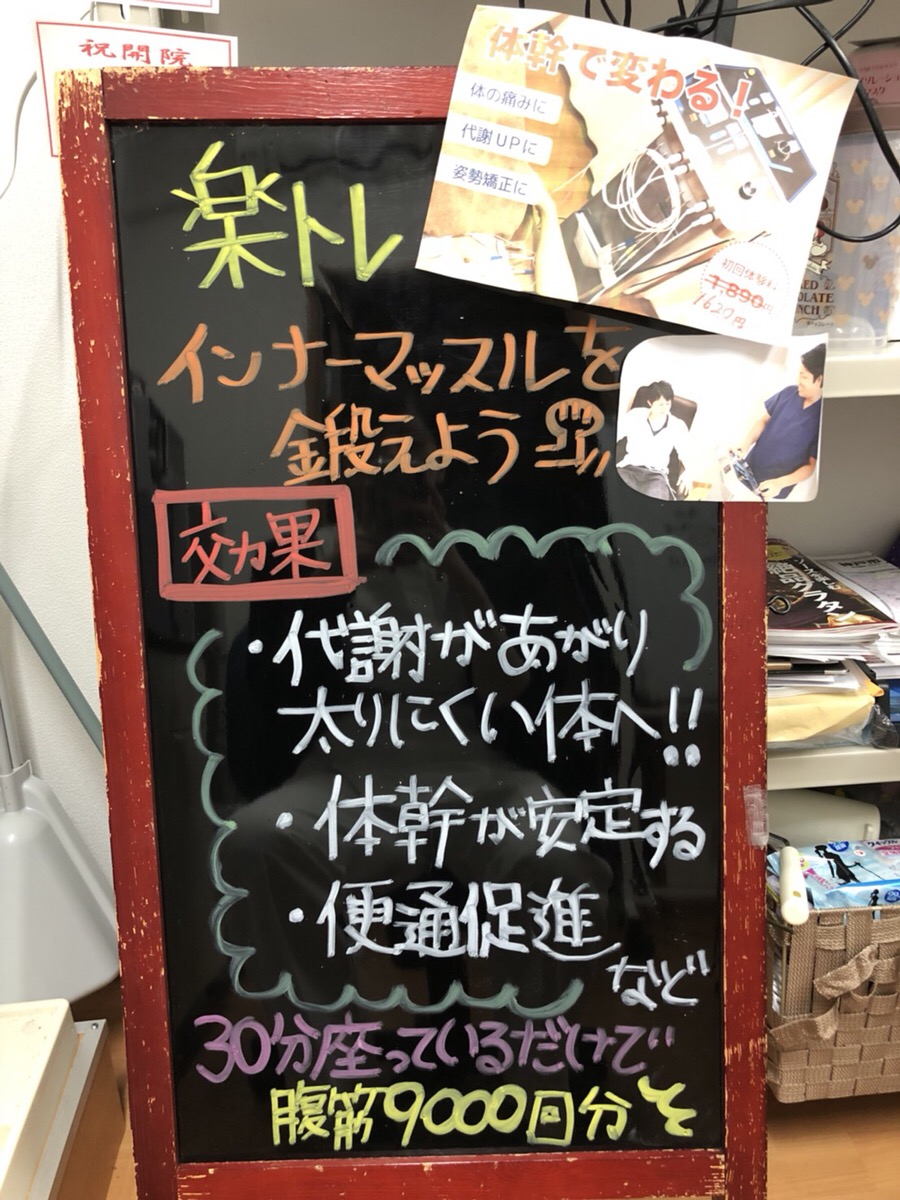 祝開院
体幹で変わる!
体の痛みに
代謝UPに
姿勢矯正に
初回体験料
1,890円
1620円
楽トレ
インナーマッスルを
鍛えよう
効果
・代謝があがり
太りにくい体へ!!
・体幹が安定する
・便通促進
など
30分座っているだけで
腹筋9000回分